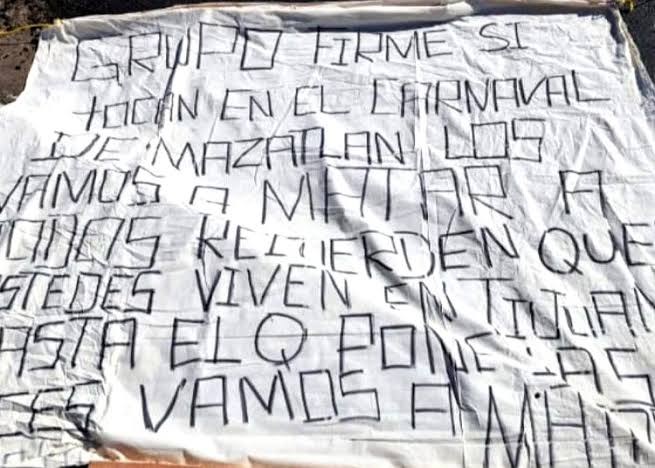 GRUPO FIRME SI
tOCAN EN EL CARNAVAL
DE MAZATLAN LOS
VAMOS A MATAR A
ODOS RECUERDEN QUE
STEDES VIVEN EN TIJUAN
ASTA EL Q PONE LAS
VAMOS A MAT